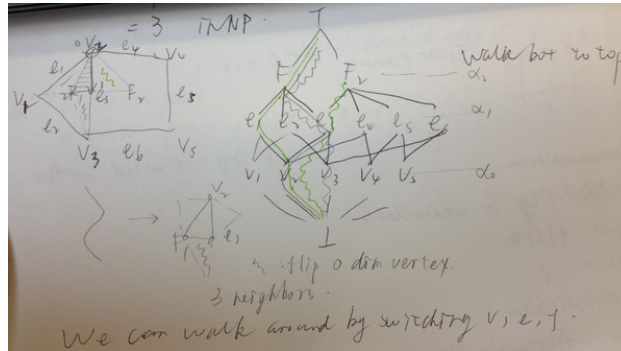 = 3 in NP.
V2 e4 V4
e1
V1 F1 e5 F2 e3
e2
V3 e6 V5
T
Walk bot to top
F F2 α2
e e2 e e4 e5 e α1
V1 V2 V3 V4 V5 α0
V2
F e5
⊥
flip 0 dim vertex.
3 neighbors.
We can walk around by switching v, e, f.